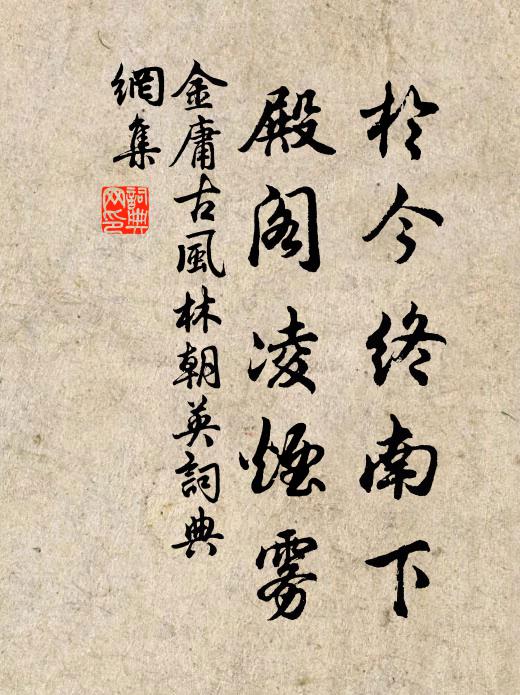 於今終南下
殿阁凌煙雾
金庸古風林朝英詞典
網集
詞典
网印